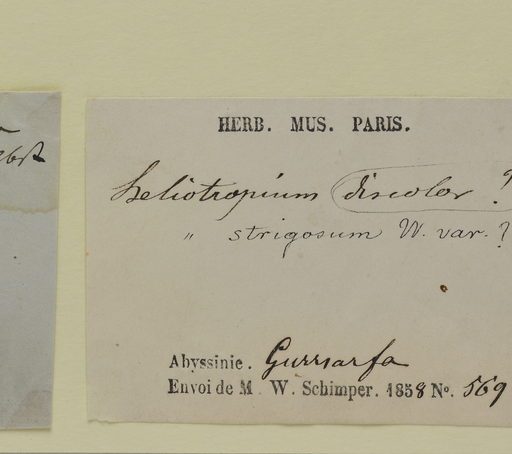 HERB. MUS. PARIS.
heliotropium discolor ?
" strigosum W. var. ?
Abyssinie. Gurrsarfa
Envoi de M. W. Schimper. 1858 No. 569